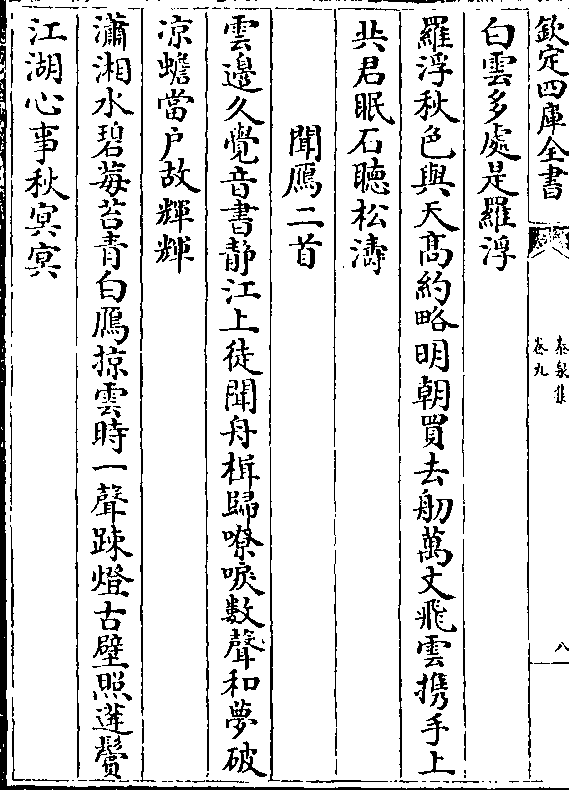 欽定四庫全書
泰泉集
卷九
八
白雲多處是羅浮
羅浮秋色與天髙約略明朝買去舠萬丈飛雲携手上
共君眠石聽松濤
聞鴈二首
雲邊久覺音書静江上徒聞舟楫歸嘹唳數聲和夢破
凉蟾當户故輝輝
瀟湘水碧莓苔青白鴈掠雲時一聲踈燈古壁照蓬鬢
江湖心事秋冥冥